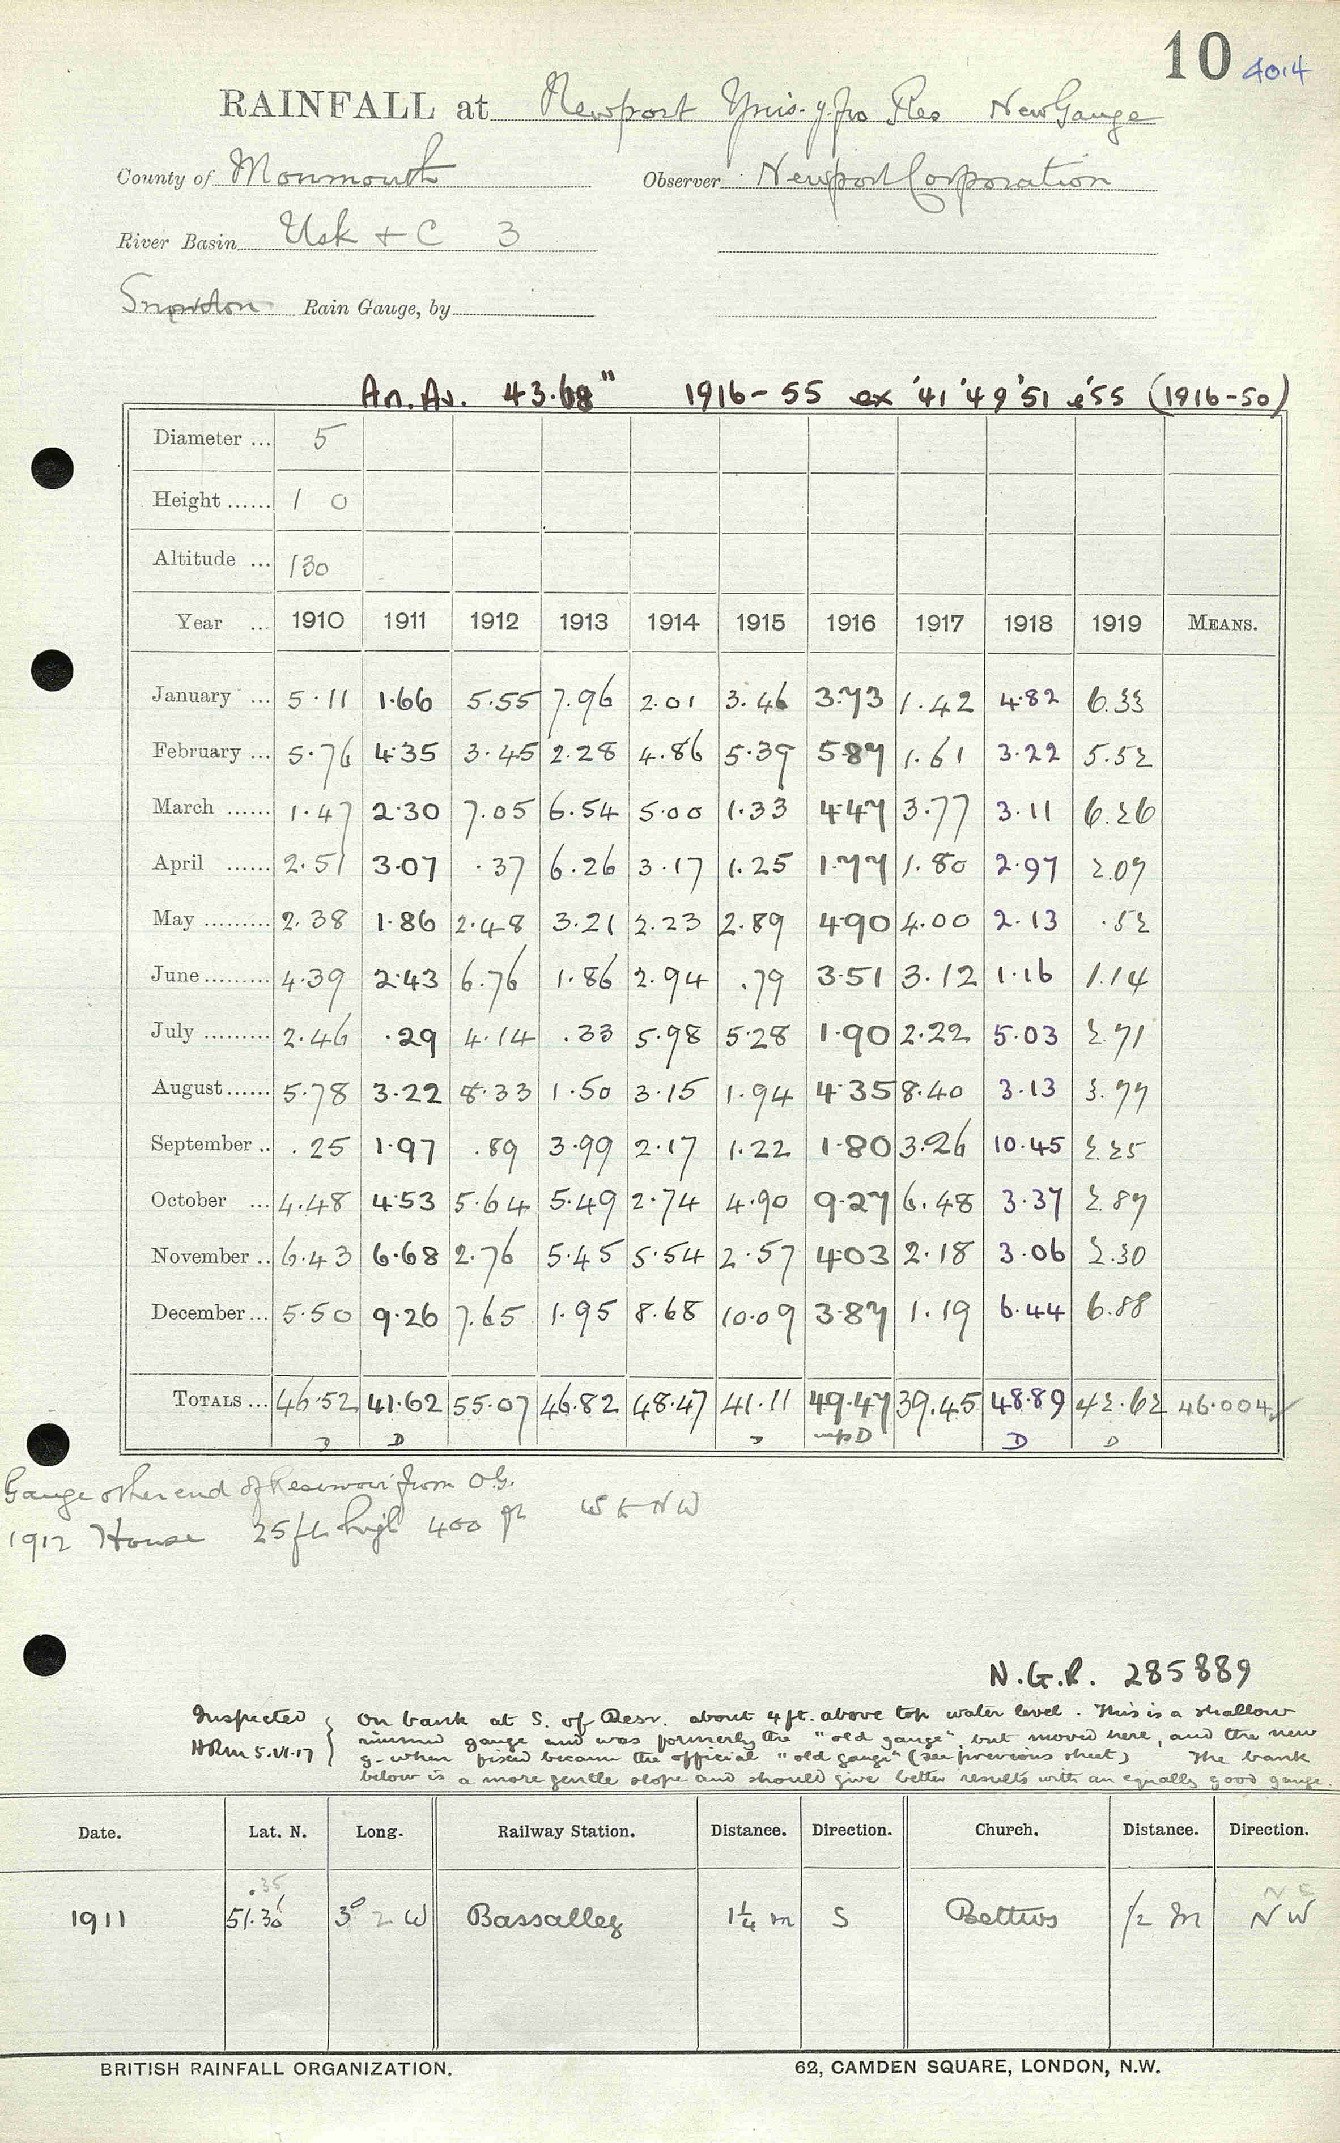 10 4014
RAINFALL at Newport Ynis-y-fro Res New Gauge
County of Monmouth Observer Newport Corporation
River Basin Usk + C 3
Snowdon Rain Gauge, by
An. Av. 43.68" 1916-55 ex '41 '49 '51 & '55 (1916-50)
Diameter ... 5
Height ...... 1 0
Altitude ... 130
Year ... 1910 1911 1912 1913 1914 1915 1916 1917 1918 1919 MEANS.
January ... 5.11 1.66 5.55 7.96 2.01 3.46 3.73 1.42 4.82 6.33
February ... 5.76 4.35 3.45 2.28 4.86 5.39 5.87 1.61 3.22 5.52
March ...... 1.47 2.30 7.05 6.54 5.00 1.33 4.47 3.77 3.11 6.26
April ...... 2.51 3.07 .37 6.26 3.17 1.25 1.77 1.80 2.97 2.07
May ......... 2.38 1.86 2.48 3.21 2.23 2.89 4.90 4.00 2.13 .52
June ......... 4.39 2.43 6.76 1.86 2.94 .79 3.51 3.12 1.16 1.14
July ......... 2.46 .29 4.14 .33 5.98 5.28 1.90 2.22 5.03 2.71
August ...... 5.78 3.22 8.33 1.50 3.15 1.94 4.35 8.40 3.13 3.77
September .. .25 1.97 .89 3.99 2.17 1.22 1.80 3.26 10.45 2.25
October ... 4.48 4.53 5.64 5.49 2.74 4.90 9.27 6.48 3.37 2.87
November .. 6.43 6.68 2.76 5.45 5.54 2.57 4.03 2.18 3.06 2.30
December ... 5.50 9.26 7.65 1.95 8.68 10.09 3.87 1.19 6.44 6.88
TOTALS ... 46.52 41.62 55.07 46.82 48.47 41.11 49.47 39.45 48.89 42.62 46.004
D D D D D D
Gauge other end of Reservoir from O.G.
1912 House 25 ft high 400 W to NW
N.G.R. 285889
Inspected On bank at S. of Resr. about 4 ft. above top water level. This is a shallow
rimmed gauge and was formerly the "old gauge", but moved here, and the new
HRM 5.VI.17 g. when fixed became the official "old gauge" (see previous sheet) The bank
below is a more gentle slope and should give better results with an equally good gauge.
Date. Lat. N. Long. Railway Station. Distance. Direction. Church. Distance. Direction.
.35 N E
1911 51.36 3° 2 W Bassalleg 1¼ m S Bettws ½ m N W
BRITISH RAINFALL ORGANIZATION. 62, CAMDEN SQUARE, LONDON, N.W.